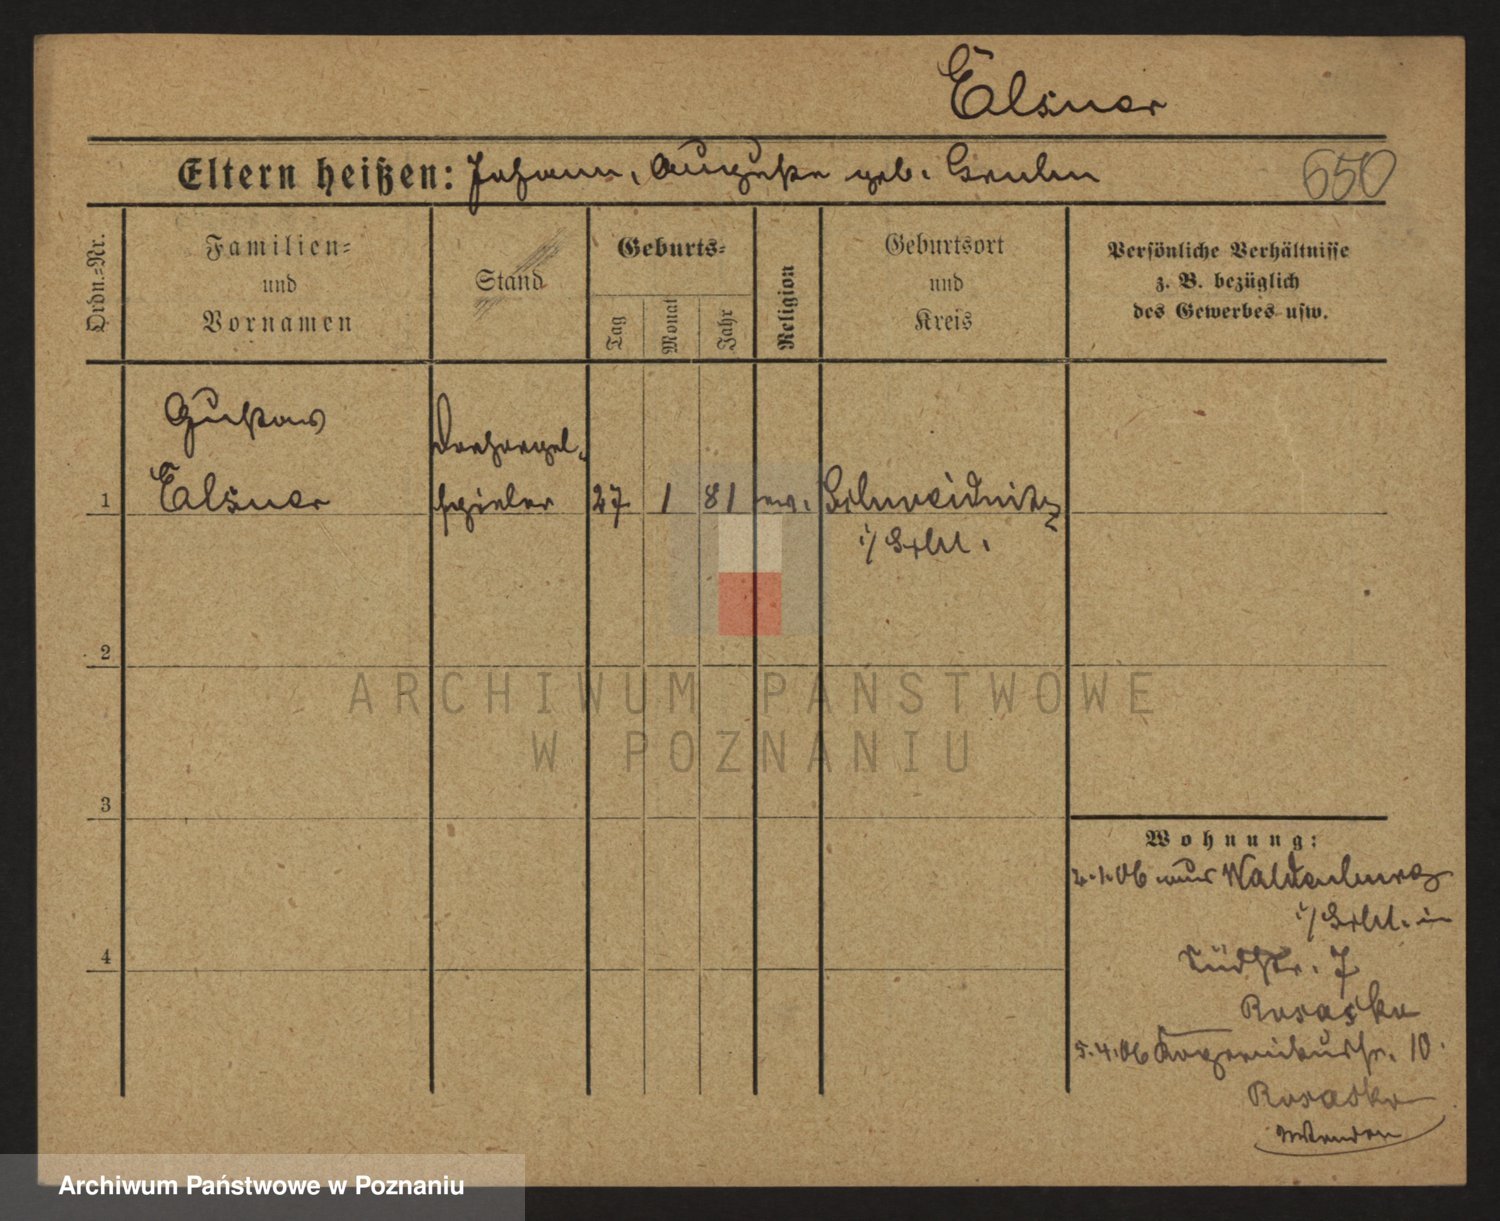 Elsner
Eltern heißen: Johann, Auguste geb.
650
Ordn.=Nr.
Familien=
und
Vornamen
Stand
Geburts=
Tag
Monat
Jahr
Religion
Geburtsort
und
Kreis
Persönliche Verhältnisse
z. B. bezüglich
des Gewerbes usw.
Gustav
Elsner
Drehorgel-
spieler
1
27 1 81 ev. Schweidnitz
i/Schl.
2
3
4
ARCHIWUM PAŃSTWOWE
W POZNANIU
Wohnung:
2.1.06 aus Waldenburg
i/Schl. in
Südstr. 7
5.4.06 Kopernikusstr. 10.
Archiwum Państwowe w Poznaniu